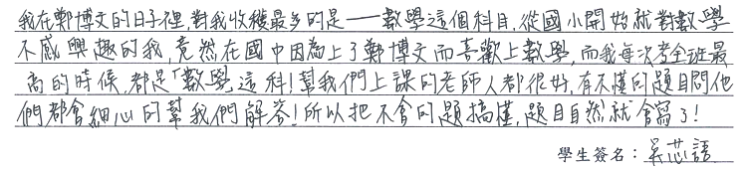 我在鄭博文的日子裡,對我收穫最多的是——數學這個科目,從國小開始就對數學
不感興趣的我,竟然在國中因為上了鄭博文而喜歡上數學,而我每次考全班最
高的時候,都是「數學」這科!幫我們上課的老師人都很好,有不懂的題目問他
們都會細心的幫我們解答!所以把不會的題搞懂,題目自然就會寫了!
學生簽名:吳芯語